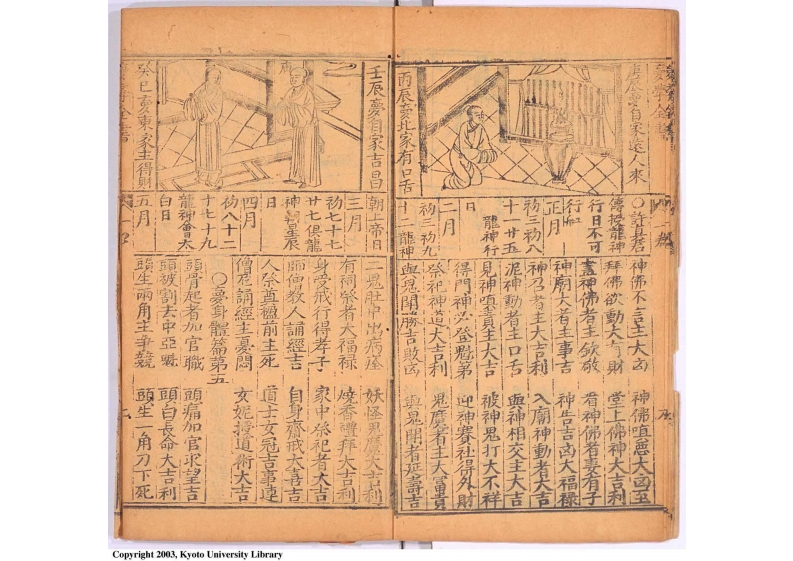 庚辰夢自家遠人來
丙辰夢比家有口舌
○許真君
傳授龍神
行日不可
行
正月
初三初八
十一廿五
龍神行
日
二月
初三初九
十二龍神
神佛不言主大凶
神佛嗔怒大凶至
拜佛欲動大有財
堂上佛神大吉利
畫神佛者主欽敬
看神佛者妻有子
神廟大者主事吉
神告吉凶大福祿
神乃者主大吉利
入廟神動者大吉
泥神動者主口舌
與神相交主大吉
見神嗔責主大吉
被神鬼打大不祥
得門神必登魁第
迎神賽社得外財
祭祀神道大吉利
鬼魔者主大富貴
與鬼鬪勝吉敗凶
與鬼鬪者延壽吉
壬辰夢自家吉昌
癸巳夢東家主得財
朝上帝日
三月
初七十七
廿七俱龍
神朝星辰
日
四月
初八十二
十七十九
龍神會太
白日
五月
一鬼肚中出病痊
妖怪惡魔大吉利
有祠祭者大福祿
燒香禮拜大吉利
身受戒行得孝子
家中祭祀者大吉
師僧教人誦經吉
自身齋戒大喜吉
人祭奠楹前主死
道士女冠吉事連
僧尼誦經主憂悶
女妮授道術大吉
○夢身體篇第五
頭骨起者加官職
頭痛加官求望吉
頭被割去中亞魁
頭白長命大吉利
頭生兩角主爭競
頭生一角刀下死
Copyright 2003, Kyoto University Library